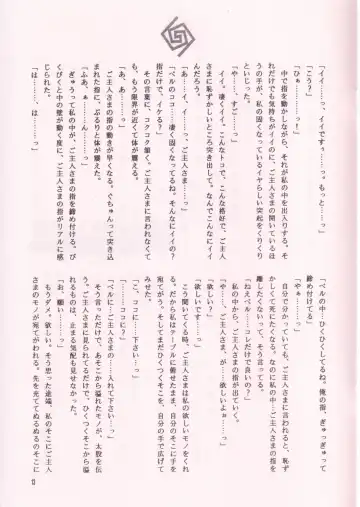 「イイ……っ、イイですぅ……っ。もっと……っ」
「こう?」
「ひぁ……っ!」
中で指を動かしながら、それが私の中を出入りする。そ
れだけでも気持ちがイイのに、ご主人さまの開いているほ
うの手が、私の固くなっているイヤらしい突起をくりくり
といじった。
「や……、すご……っ」
イイ。凄くイイ。こんなトコで、こんな格好で、ご主人
さまに恥ずかしいところ突き出して。なんでこんなにイイ
んだろう。
「あ…イイ、イイ…っ、ご主人さま……っ」
「ベルのココ……凄く固くなってるね。そんなにイイの?
指だけで、イケる?」
その言葉に、コクコク頷く。ご主人さまに言われなくて
も、もう限界が近くて体が震えた。
「あ、あ……っ」
ご主人さまの指の動きが早くなる。ぐちゅんって突き込
まれた指に、ぶるりと体が震えた。
「ふあ、ぁ……っ、ん……っ」
ぎゅうって私の中が、ご主人さまの指を締め付ける。び
くびくと中の壁が動く度に、ご主人さまの指がリアルに感
じられた。
「は……、は……っ」
「ベルの中…ひくひくしてるね。俺の指、ぎゅっぎゅって
締め付けてる」
「やぁ……っ」
自分で分かっていても、ご主人さまに言われると、恥ず
かしくて死にたくなる。なのに私の中…ご主人さまの指を
離したくないって、そう言ってる。
「ねえベル…コレだけで良いの?」
私の中から、ご主人さまの指が出ていく。
「や……っ、ご主人さま…が……欲しいよぉ……っ」
「欲しいです…っ」
こう聞いてくる時、ご主人さまは私の欲しいモノをくれ
る。だから私はテーブルに俯せたまま、自分のそこに手を
宛てがう。そしてまだひくつくそこを、自分の手で広げて
みせた。
「こ、ココに……下さい…っ」
「……ココに?」
「ベルに…ご主人さまの……入れて下さい…っ」
そう言っただけで、あそこから溢れたモノが、太股を伝
う。ご主人さまに見られてるだけで、ひくつくそこから溢
れるものは、止まる気配も見せなかった。
「お、願い……っ」
もうダメ。欲しい。そう思った途端、私のそこにご主人
さまのモノが宛てがわれる。先を充ててぬるぬるのそこに